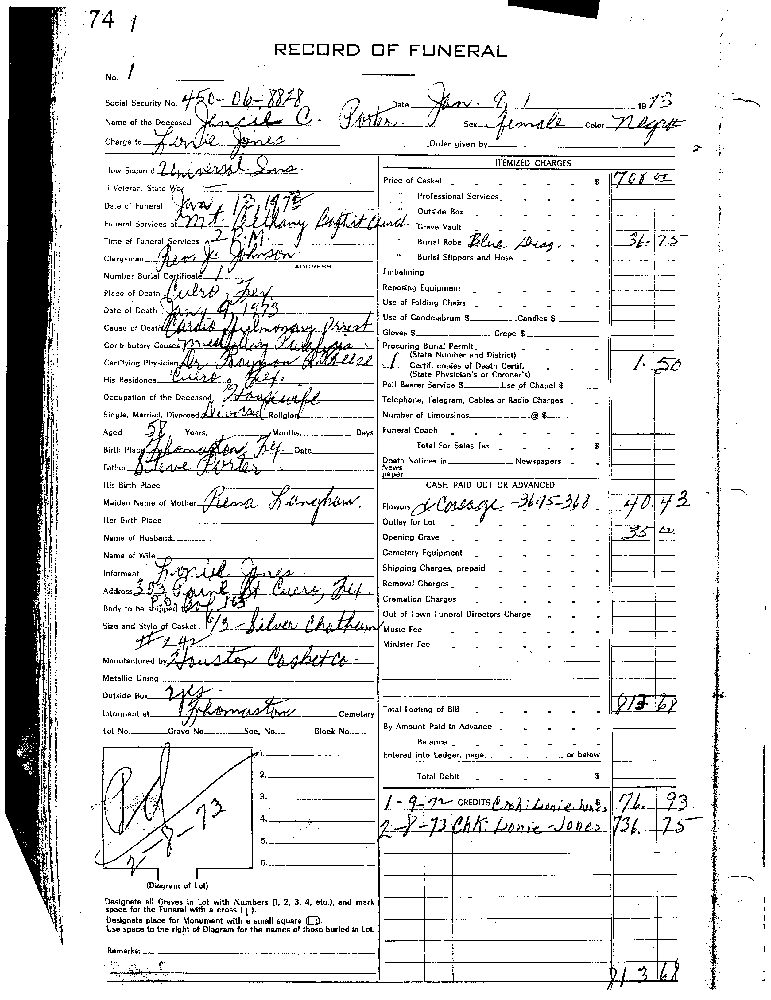 74 1
RECORD OF FUNERAL
No. 1
Social Security No. 450-06-8828 Date Jan. 9, 1 1973
Name of the Deceased C. Porter. Sex female Color Negro
Charge to Lonie Jones Order given by
How Secured Universal Ins
If Veteran, State War
Date of Funeral Jan 13, 1973
Funeral Services at Mt. Bethany Baptist Church
Time of Funeral Services 2 P.M.
Clergyman Rev. J. Johnson
ADDRESS
Number Burial Certificate 1
Place of Death Cuero, Tex
Date of Death Jan 9, 1973
Cause of Death Cardio Pulmonary Arrest
Contributory Causes
Certifying Physician Dr.
His Residence Cuero, Tex.
Occupation of the Deceased Housewife
Single, Married, Divorced Divorced Religion
Aged 58 Years, Months, Days
Birth Place Thomaston, Tex Date
Father Steve Porter
His Birth Place
Maiden Name of Mother Rena Langham.
Her Birth Place
Name of Husband
Name of Wife
Informant Jones
Address 303 St. Cuero, Tex.
Body to be shipped to P.O. Box 163
Size and Style of Casket 6/3 - Silver Chatham
# 242
Manufactured by Houston Casket Co.
Metallic Lining
Outside Box yes
Interment at Thomaston Cemetery
Lot No. Grave No. Sec. No. Block No.
Pd
2-8-73
1.
2.
3.
4.
5.
6.
(Diagram of Lot)
Designate all Graves in Lot with Numbers (1, 2, 3, 4, etc.), and mark
space for the Funeral with a cross (†).
Designate place for Monument with a small square (□).
Use space to the right of Diagram for the names of those buried in Lot.
Remarks:
ITEMIZED CHARGES
Price of Casket $ 700 00
" Professional Services
" Outside Box
" Grave Vault
" Burial Robe Blue 36.75
" Burial Slippers and Hose
Embalming
Reposing Equipment
Use of Folding Chairs
Use of Candelabrum $ Candles $
Gloves $ Crepe $
Procuring Burial Permit
(State Number and District)
1 Certif. copies of Death Certif. 1.50
(State Physician's or Coroner's)
Pall Bearer Service $ Use of Chapel $
Telephone, Telegram, Cables or Radio Charges
Number of Limousines @ $
Funeral Coach
Total for Sales Tax $
Death Notices in Newspapers
News
paper
CASH PAID OUT OR ADVANCED
Flowers & Corsage - 36.75-3.68 40.43
Outlay for Lot
Opening Grave 35 00
Cemetery Equipment
Shipping Charges, prepaid
Removal Charges
Cremation Charges
Out of Town Funeral Directors Charge
Music Fee
Minister Fee
Total Footing of Bill 813 68
By Amount Paid in Advance
Balance
Entered into Ledger, page or below
Total Debit $
1-9-72 CREDITS Csh: Lonie Jones 76. 93
2-8-73 Chk: Lonie Jones 736. 75
813 68